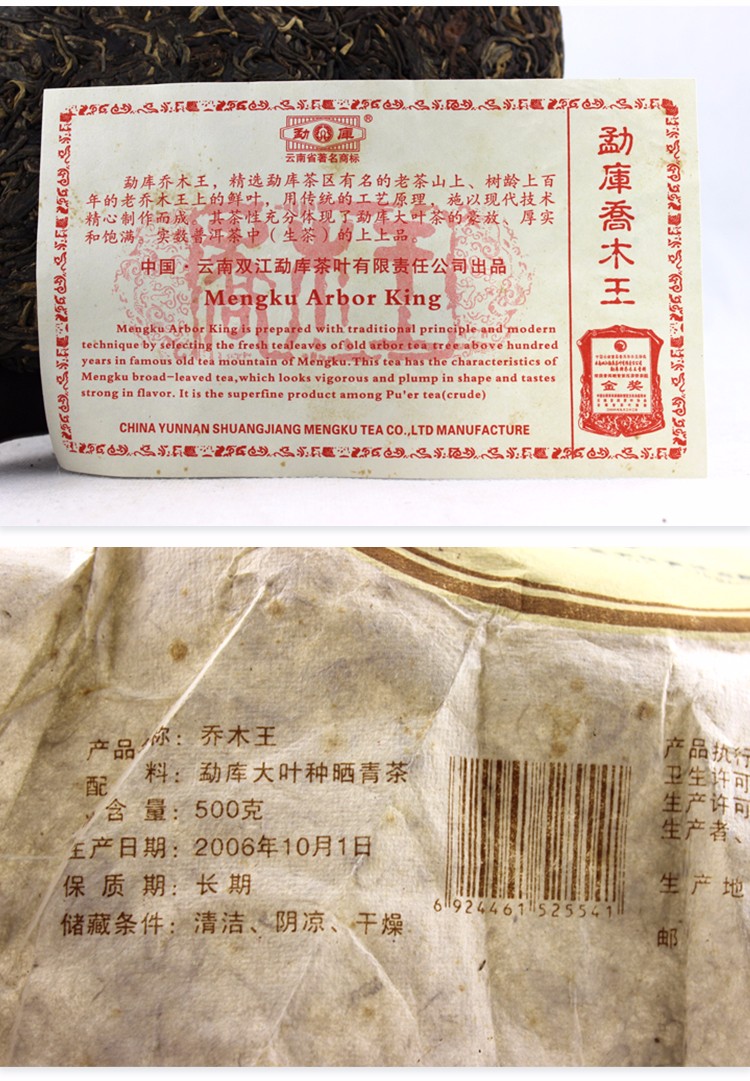 勐库
®
云南省著名商标
勐库乔木王，精选勐库茶区有名的老茶山上、树龄上百
年的老乔木王上的鲜叶，用传统的工艺原理，施以现代技术
精心制作而成，其茶性充分体现了勐库大叶茶的豪放、厚实
和饱满，实数普洱茶中（生茶）的上上品。
中国·云南双江勐库茶叶有限责任公司出品
Mengku Arbor King
Mengku Arbor King is prepared with traditional principle and modern
technique by selecting the fresh tealeaves of old arbor tea tree above hundred
years in famous old tea mountain of Mengku. This tea has the characteristics of
Mengku broad-leaved tea,which looks vigorous and plump in shape and tastes
strong in flavor. It is the superfine product among Pu'er tea(crude)
CHINA YUNNAN SHUANGJIANG MENGKU TEA CO.,LTD MANUFACTURE
勐庫喬木王
金奖
产品 称：乔木王
配 料：勐库大叶种晒青茶
含 量：500克
生产日期：2006年10月1日
保 质 期：长期
储藏条件：清洁、阴凉、干燥
6 924461 525541
产品执行
卫生许可
生产许可
生产者、
生 产 地
邮